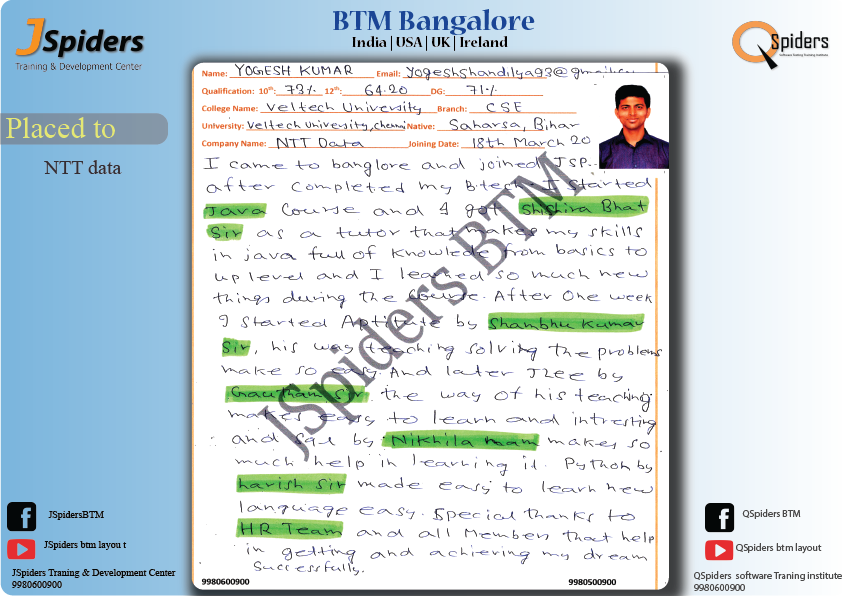 JSpiders
Training & Development Center
BTM Bangalore
India | USA | UK | Ireland
QSpiders
Placed to
NTT data
Name: YOGESH KUMAR Email: yogeshshandilya93@gmail.co
Qualification: 10th: 73% 12th: 64.20 DG: 71%
College Name: Veltech University Branch: CSE
University: Veltech University, Chennai Native: Saharsa, Bihar
Company Name: NTT Data Joining Date: 18th March 20
I came to banglore and joined JSP.
after completed my Btech. I started
Java Course and I got Shishira Bhat
Sir as a tutor that makes my skills
in java full of knowlede from basics to
up level and I learned so much new
things during the course. After One week
I started Aptitute by Shambhu Kumar
Sir, his way teaching solving the problems
make so easy. And later J2ee by
Gautham Sir the way of his teaching
makes easy to learn and intresting
and Sql by Nikhila mam makes so
much help in learning it. Python by
harish Sir made easy to learn new
language easy. Special thanks to
HR Team and all Members that help
in getting and achieving my dream
Successfully.
JSpiders BTM
9980600900 9980500900
JSpidersBTM
JSpiders btm layou t
JSpiders Traning & Development Center
9980600900
QSpiders BTM
QSpiders btm layout
QSpiders software Traning institute
9980600900